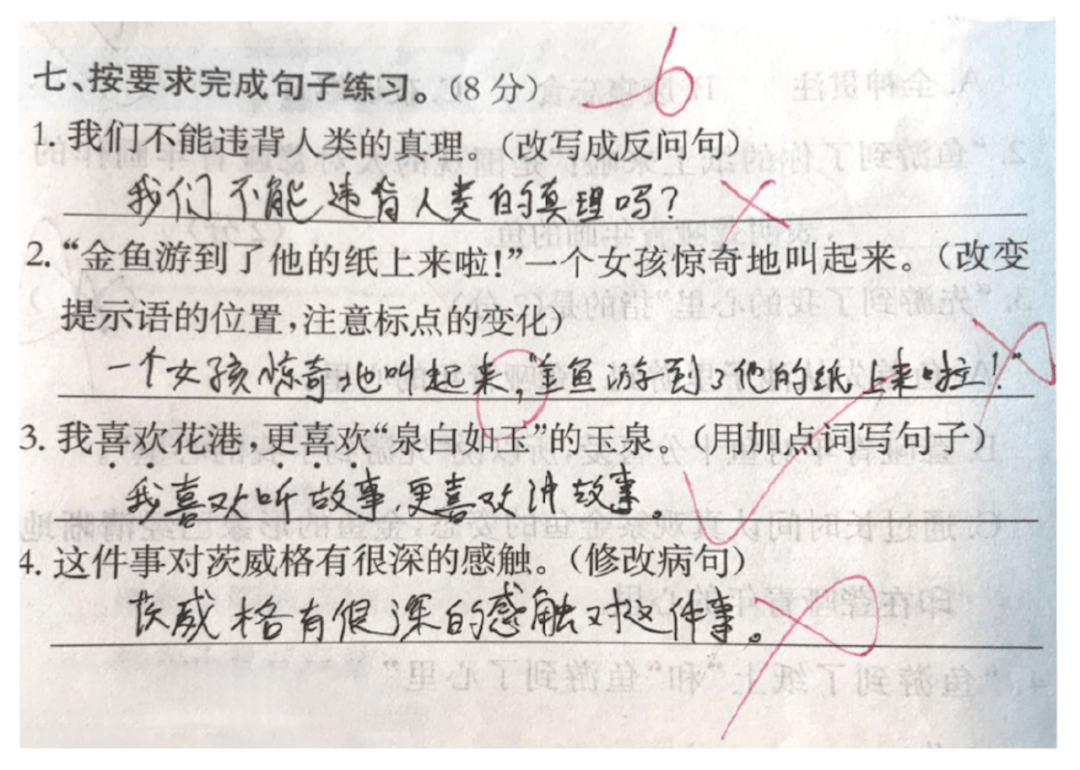 七、按要求完成句子练习。(8分) -6
1. 我们不能违背人类的真理。(改写成反问句)
我们不能违背人类的真理吗?
2. “金鱼游到了他的纸上来啦!”一个女孩惊奇地叫起来。(改变
提示语的位置,注意标点的变化)
一个女孩惊奇地叫起来,“金鱼游到了他的纸上来啦!”
3. 我喜欢花港,更喜欢“泉白如玉”的玉泉。(用加点词写句子)
我喜欢听故事,更喜欢讲故事。
4. 这件事对茨威格有很深的感触。(修改病句)
茨威格有很深的感触对这件事。